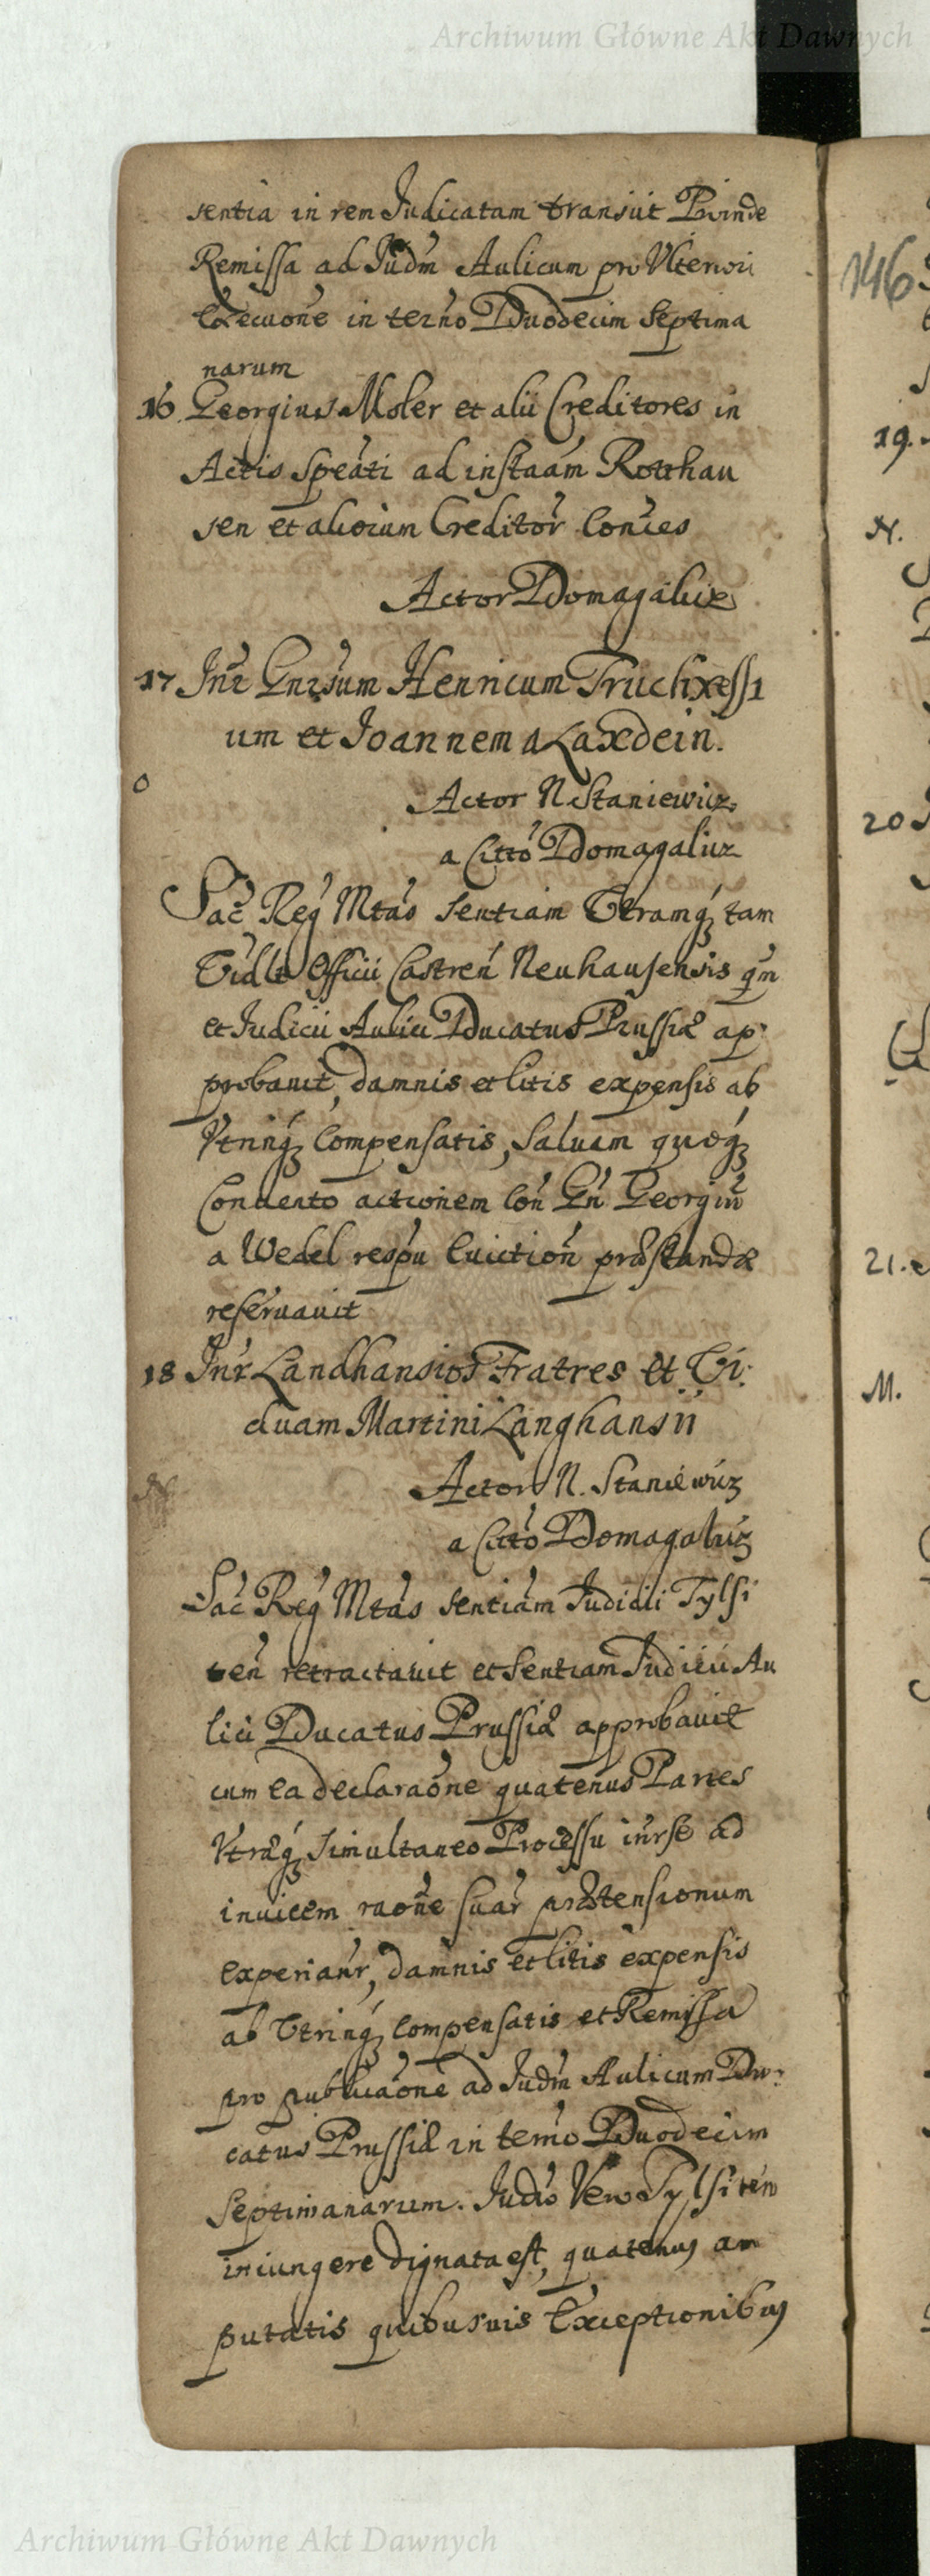 Archiwum Główne Akt Dawnych
sentia in rem Judicatam transiit Proinde
Remissa ad Judm Aulicum pro Ulteriori
Execuone in termo Duodecim Septima
narum
16. Georgius Moler et alii Creditores in
Actis Speati ad instaam Rotthau
sen et aliorum Creditor Conies
Actor Domagalicz
17 Intr Gnrsum Henricum Truchsessi
um et Joannem a Laxdein.
o
Actor N Staniewicz
a Citto Domagalicz
Sac Reg Mtas sentiam Utramq tam
Vidlt Officii Castren Neuhausensis qm
et Judicii Aulici Ducatus Prussiæ ap
probauit, damnis et litis expensis ab
Utrinq Compensatis, Saluam quoq
Conuento actionem Con Gn Georgiu
a Wedel respu Euiction præstandæ
reseruauit
18 Intr Landhansios Fratres et Vi:
duam Martini Langhansii
N
Actor N. Staniewicz
a Citto Domagalicz
Sac Reg Mtas sentiam Judicii Tylsi
ten retractauit et sentiam Judicii Au
lici Ducatus Prussiæ approbauit
cum ea declaraone quatenus Partes
Utræq Simultaneo Processu inrse ad
inuicem raone suar prætensionum
experianr, damnis et litis expensis
ab Utrinq compensatis et Remissa
pro publicaone ad Judm Aulicum Du:
catus Prussiæ in termo Duodecim
Septimanarum. Judio Vero Tylsiten
iniungere dignata est, quatenus am
putatis quibusuis Exceptionibus
146
19.
N.
20
21.
M.
Archiwum Główne Akt Dawnych